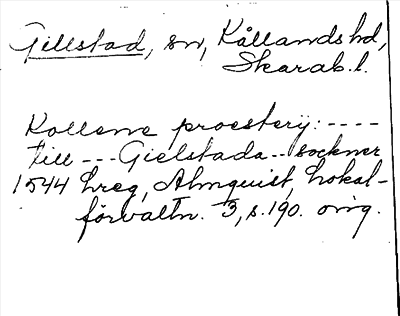 Gillstad, sn, Kållands hd,
Skarab. l.
Kollene proestery: ----
till --- Gielstada -- sockner
1544 hreg, Almquist, Lokal-
förvaltn. 3, s. 190. orig.